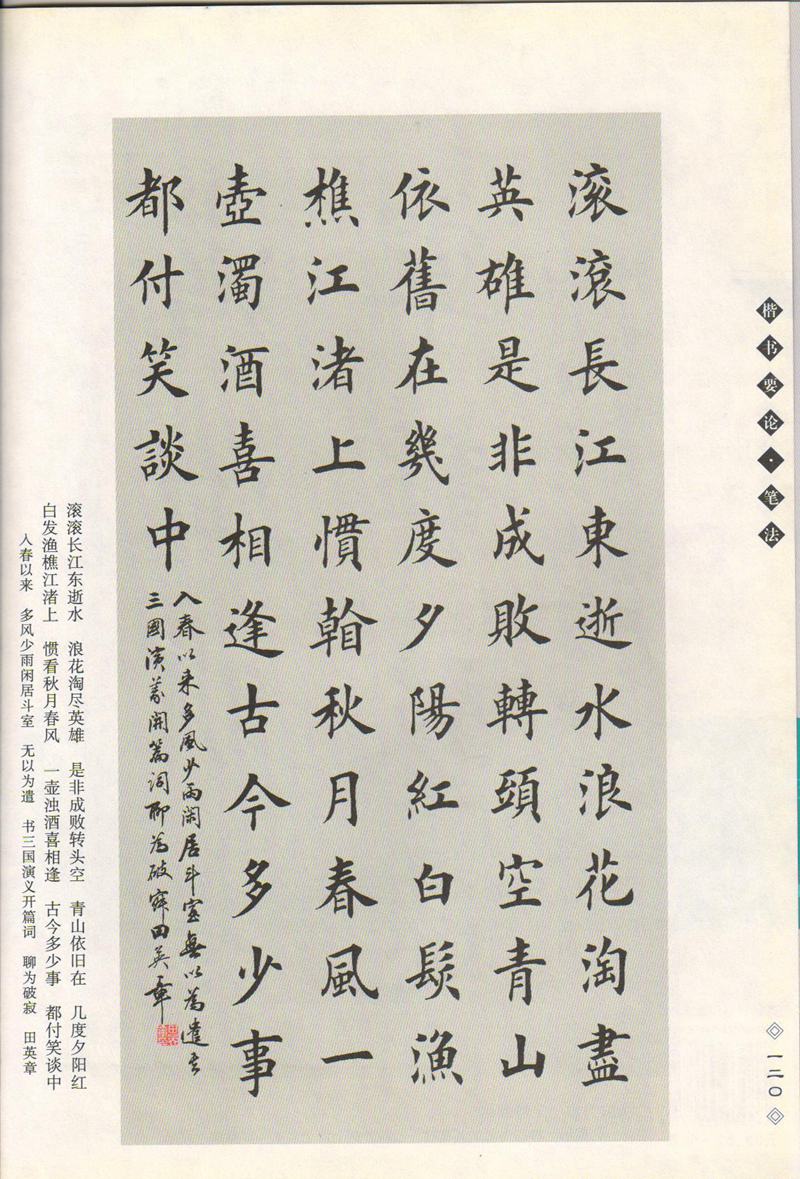 楷书要论·笔法
一二〇
滚滚長江東逝水浪花淘盡
英雄是非成敗轉頭空青山
依舊在幾度夕陽紅白髮漁
樵江渚上慣看秋月春風一
壺濁酒喜相逢古今多少事
都付笑談中
入春以来多風少雨閑居斗室無以為遣书
三國演義開篇词聊为破寂田英章
滚滚长江东逝水 浪花淘尽英雄 是非成败转头空 青山依旧在 几度夕阳红
白发渔樵江渚上 惯看秋月春风 一壶浊酒喜相逢 古今多少事 都付笑谈中
入春以来 多风少雨闲居斗室 无以为遣 书三国演义开篇词 聊为破寂 田英章